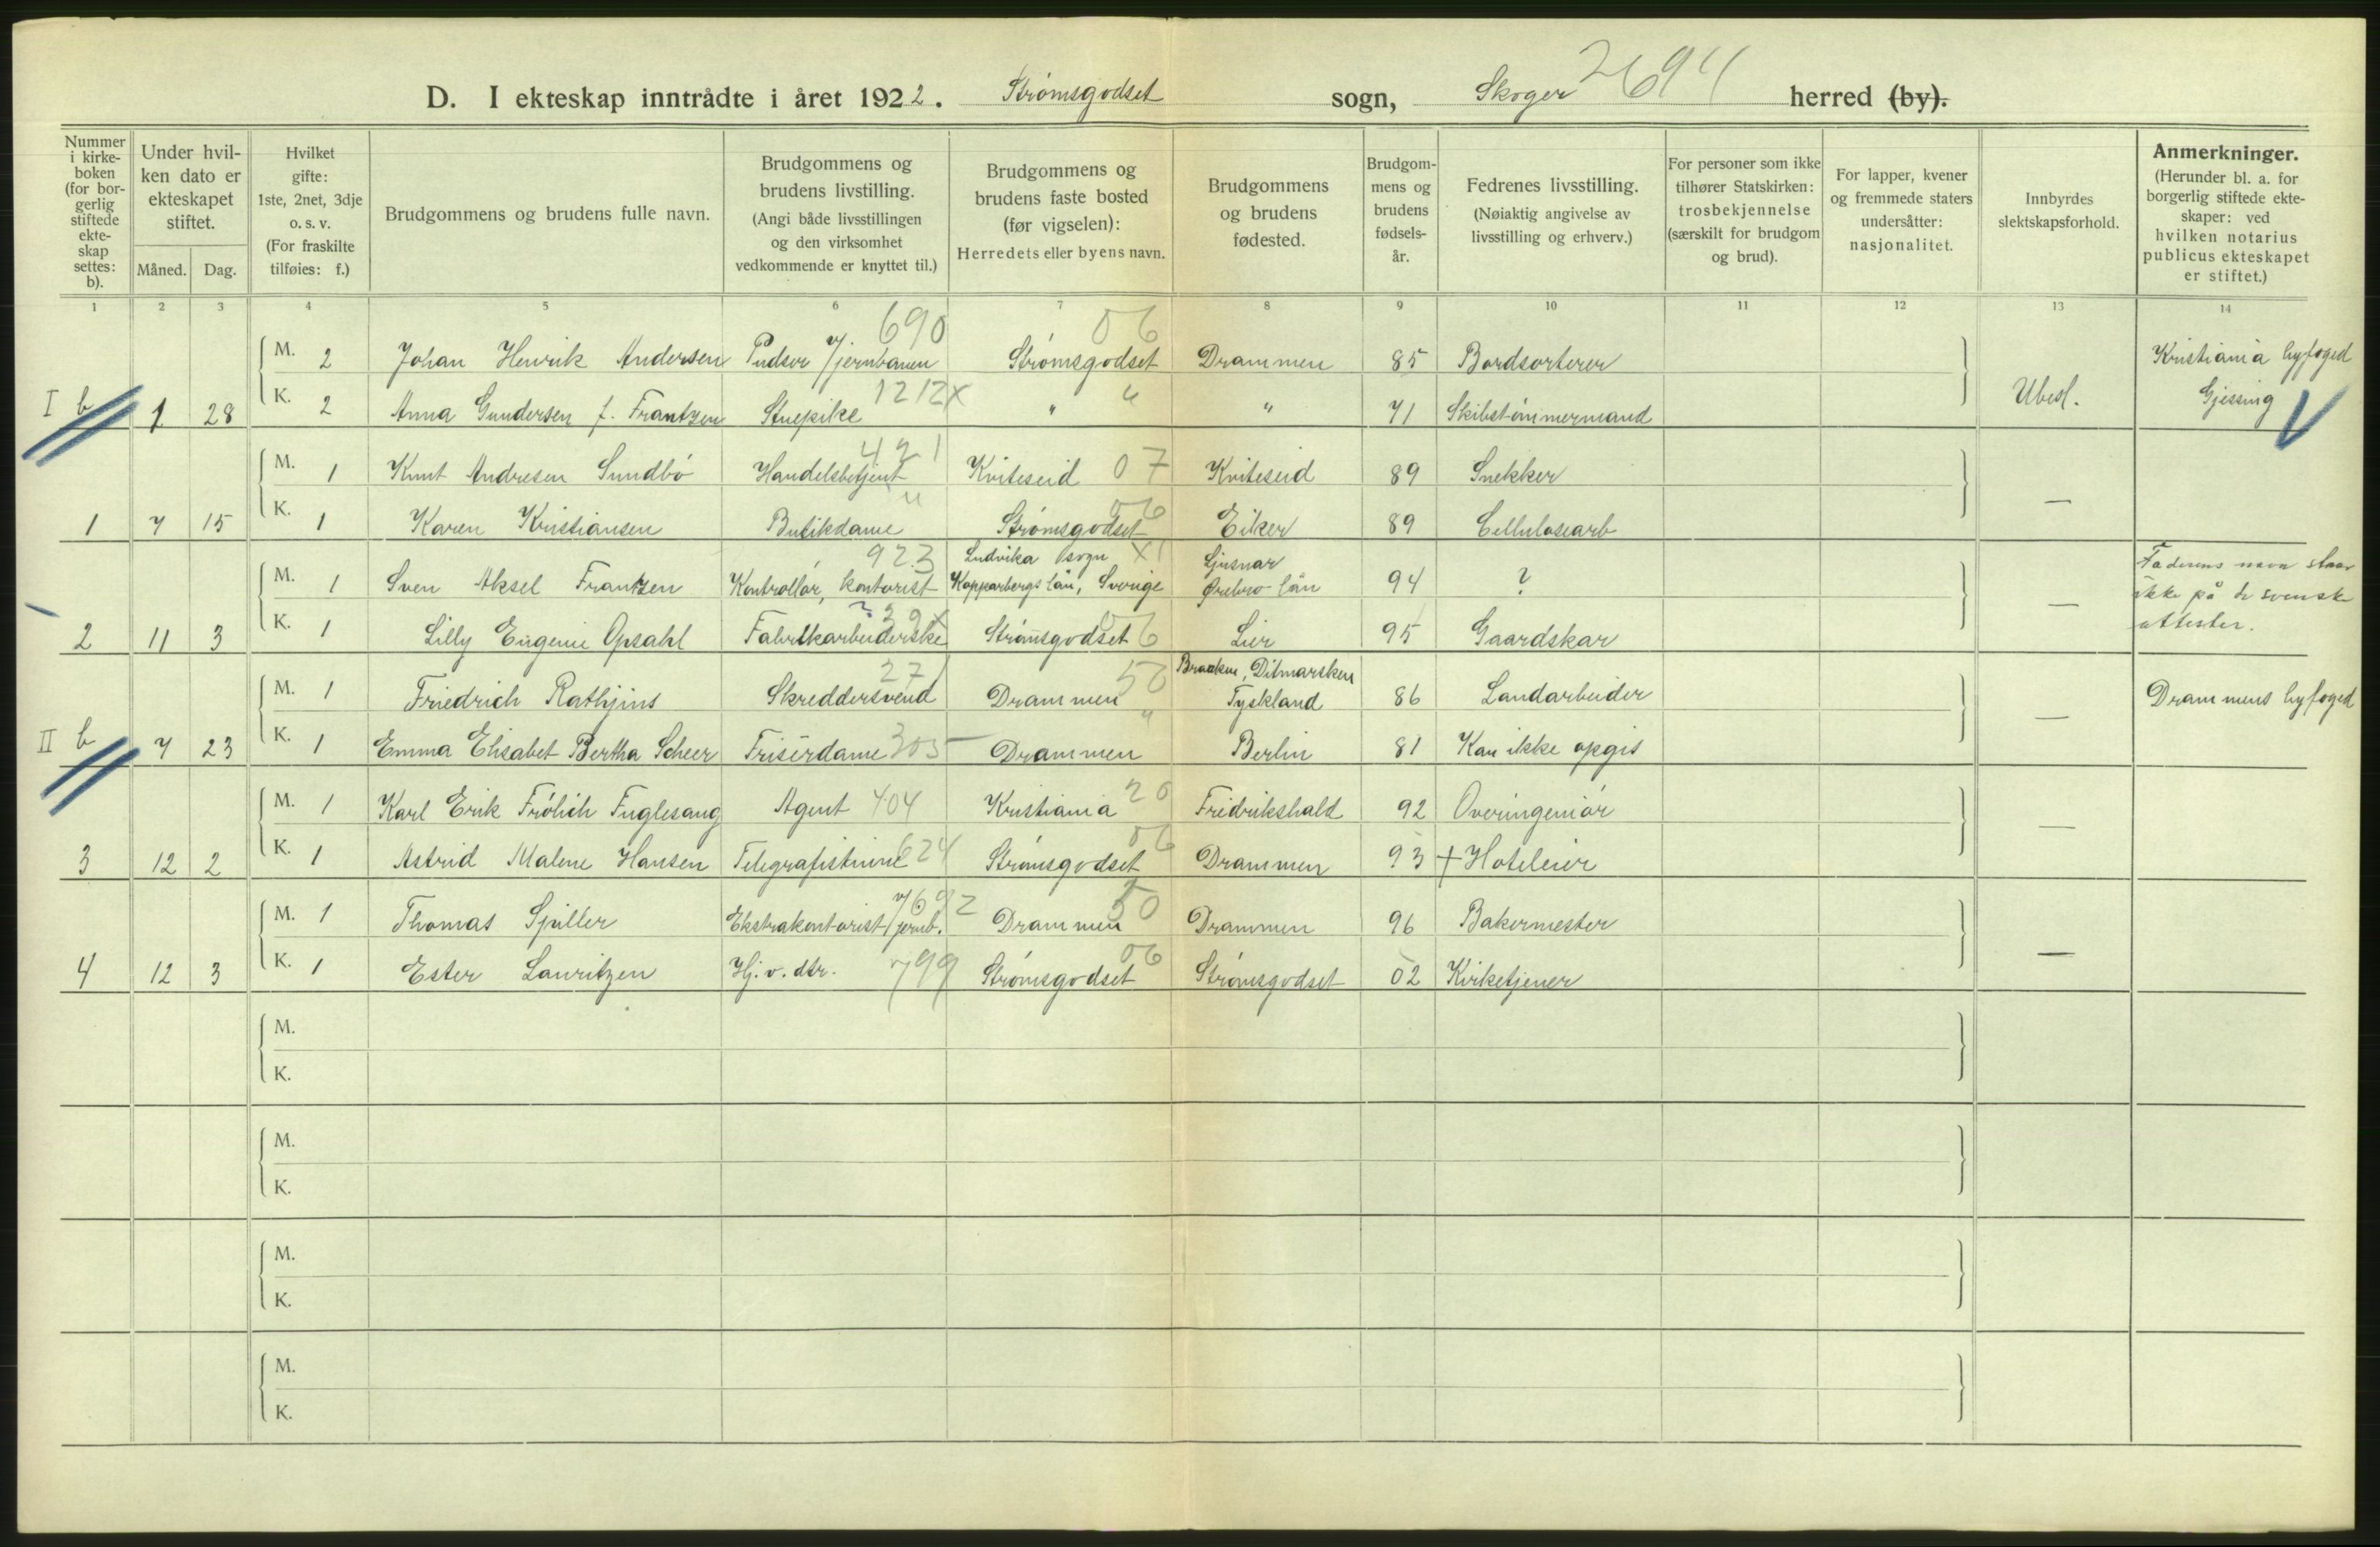 D. I ekteskap inntrådte i året 1922. Strømsgodset sogn, Skoger 2694 herred (by).
Nummer i kirke-boken (for bor-gerlig stiftede ekte-skap settes: b).
Under hvil-ken dato er ekteskapet stiftet.
Måned. Dag.
Hvilket gifte: 1ste, 2net, 3dje o. s. v. (For fraskilte tilføies: f.)
Brudgommens og brudens fulle navn.
Brudgommens og brudens livstilling. (Angi både livsstillingen og den virksomhet vedkommende er knyttet til.)
Brudgommens og brudens faste bosted (før vigselen): Herredets eller byens navn.
Brudgommens og brudens fødested.
Brudgom-mens og brudens fødsels-år.
Fedrenes livsstilling. (Nøiaktig angivelse av livsstilling og erhverv.)
For personer som ikke tilhører Statskirken: trosbekjennelse (særskilt for brudgom og brud).
For lapper, kvener og fremmede staters undersåtter: nasjonalitet.
Innbyrdes slektskapsforhold.
Anmerkninger. (Herunder bl. a. for borgerlig stiftede ekte-skaper: ved hvilken notarius publicus ekteskapet er stiftet.)
1 2 3 4 5 6 7 8 9 10 11 12 13 14
690 06
M. 2 Johan Henrik Andersen Pudser v/jernbanen Strømsgodset Drammen 85 Bordsorterer Kristiania byfoged
1212x "
I b 1 28 K. 2 Anna Gundersen f. Frantzen Stuepike " " 71 Skibstømmermand Ubesl. Gjessing
421
M. 1 Knut Andresen Sundbö Handelsbetjent Kviteseid 07 Kviteseid 89 Snekker
" 06
1 7 15 K. 1 Karen Kristiansen Butikdame Strømsgodset Eiker 89 Cellulosearb —
923 Ludvika sogn X1 Ljusnar Faderens navn staar
M. 1 Sven Aksel Frantzen Kontrollør, kontorist Kopparbergs län, Sverige Ørebro län 94 ? ikke på de svenske
39x 06
2 11 3 K. 1 Lilly Eugenie Opsahl Fabrikkarbeiderske Strømsgodset Lier 95 Gaardskar — attester.
271 50 Braaken, Ditmarsken
M. 1 Friedrich Rathjins Skreddersvend Drammen Tyskland 86 Landarbeider Drammens byfoged
II b 7 23 K. 1 Emma Elisabet Bertha Scheer Frisérdame 305 Drammen " Berlin 81 Kan ikke opgis —
M. 1 Karl Erik Frölich Fuglesang Agent 404 Kristiania 20 Fredrikshald 92 Overingeniør
3 12 2 K. 1 Astrid Malene Hansen Telegrafistinne 624 Strømsgodset 06 Drammen 93 + Hoteleier —
7692 50
M. 1 Thomas Spiller Ekstrakontorist v/jernb. Drammen Drammen 96 Bakermester
4 12 3 K. 1 Ester Lauritzen Hj. v. dtr. 799 Strømsgodset 06 Strømsgodset 02 Kirketjener —
M.
K.
M.
K.
M.
K.
M.
K.